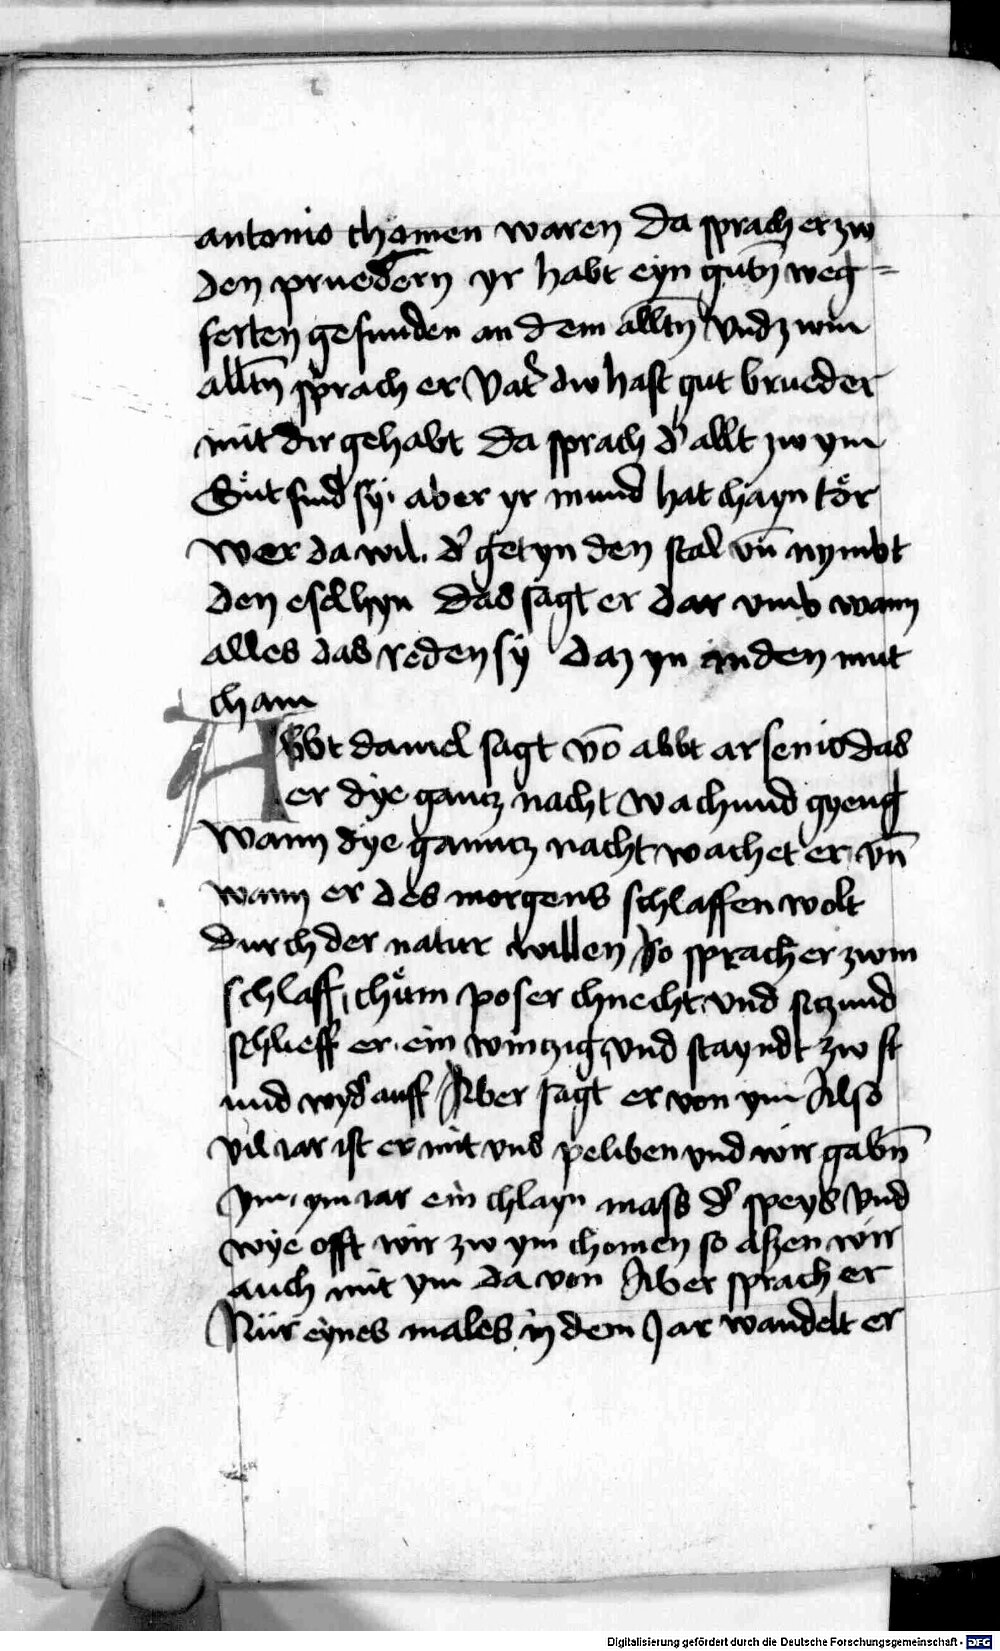 antonio chömen waren Da sprach er zw
den pruedern yr habt eyn gutn̄ weg=
ferten gefunden an dem alltn̄ Vnd zwm
alltn̄ sprach er Vat͛ dw hast gut brueder
mit dir gehabt Da sprach d͛ allt zw ym
Gůt sind sÿ. aber yr mund hat chayn tör
wer da wil. d͛ get yn den stal vn̄ nymbt
den esel hyn Das sagt er dar vmb wann
alles das reden sÿ Daz yn in den mut
cham
Abbt daniel sagt vō abbt arsenio das
er dÿe gancz nacht wachund gyeng
wann dÿe ganncz nacht wachet er vn̄
wann er des morgens schlaffen wolt
durch der natur willen So sprach er zwm
schlaff, chům poser chnecht vnd siczund
schlieff er ein winczig vnd stayndt zw st
und wyd͛ auff Aber sagt er von ym Also
vil iar ist er mit vns peliben vnd wir gabn̄
ym. ym iar ein chlayn mass d͛ speys Vnd
wÿe offt wir zw ym chomen so aßen wir
auch mit ym da von Aber sprach er
Nür eÿnes males in dem Jar wandelt er
Digitalisierung gefördert durch die Deutsche Forschungsgemeinschaft - DFG